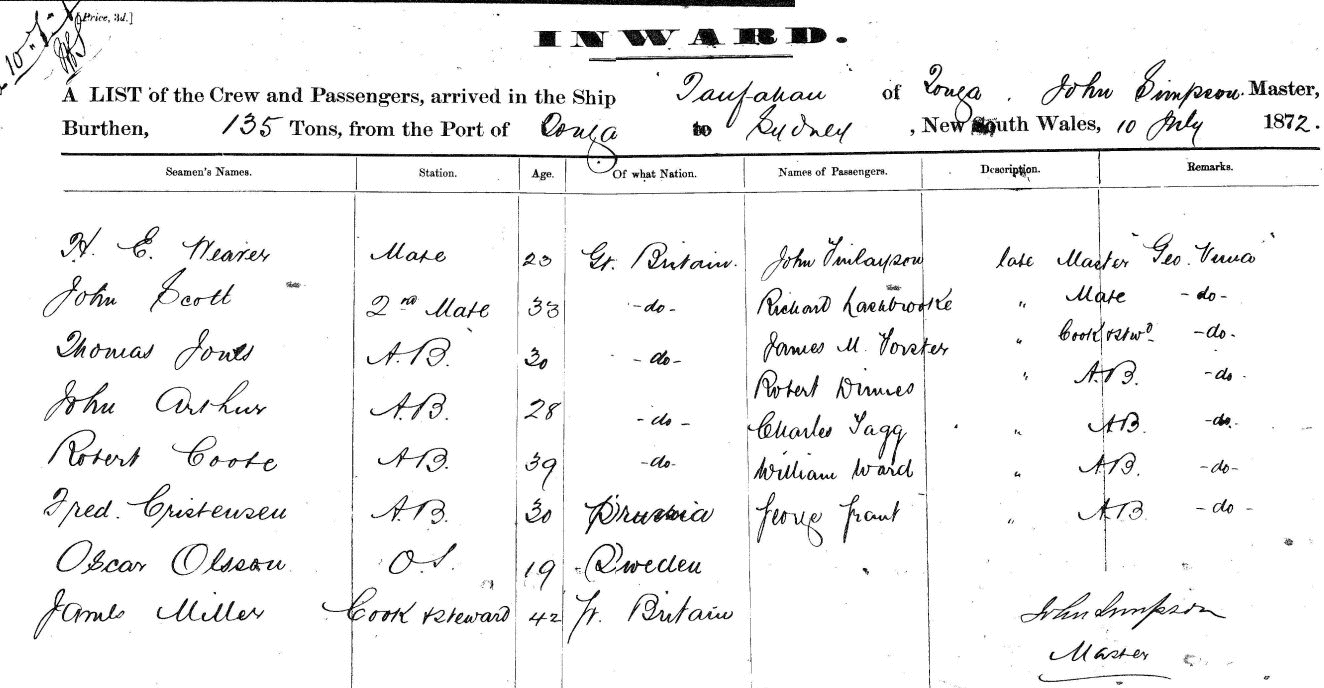 [Price, 3d.]
INWARD.
A LIST of the Crew and Passengers, arrived in the Ship Taufahau of Tonga. John Simpson Master,
Burthen, 135 Tons, from the Port of Tonga to Sydney, New South Wales, 10 July 1872.
Seamen's Names. Station. Age. Of what Nation. Names of Passengers. Description. Remarks.
H. E. Weaver Mate 23 Gt. Britain. John Finlayson late Master "Geo. Verna"
John Scott 2nd Mate 33 -do- Richard Lashbrooke " Mate -do-
Thomas Jones A.B. 30 -do- James M. Forster " Cook & Stwd -do-
Robert Dimes " A.B. -do-
John Arthur A.B. 28 -do- Charles Tagg " AB. -do-
Robert Coote AB. 39 -do- William Ward " A.B. -do-
Fred. Cristensen A.B. 30 Prussia George Grant " AB -do-
Oscar Olsson O.S. 19 Sweden
James Miller Cook & Steward 42 Gt. Britain
John Simpson
Master